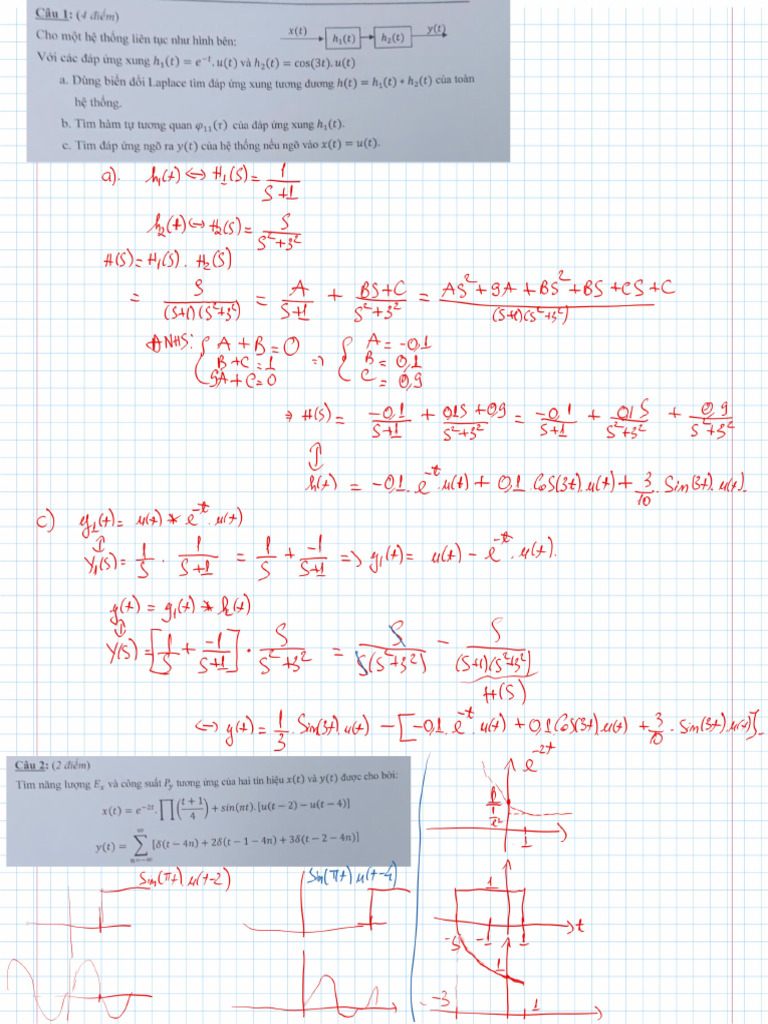 Câu 1: (4 điểm)
Cho một hệ thống liên tục như hình bên:
x(t) h₁(t) h₂(t) y(t)
Với các đáp ứng xung h₁(t) = e⁻ᵗ.u(t) và h₂(t) = cos(3t).u(t)
a. Dùng biến đổi Laplace tìm đáp ứng xung tương đương h(t) = h₁(t) * h₂(t) của toàn
hệ thống.
b. Tìm hàm tự tương quan φ₁₁(τ) của đáp ứng xung h₁(t).
c. Tìm đáp ứng ngõ ra y(t) của hệ thống nếu ngõ vào x(t) = u(t).
a). h₁(t) ↔ H₁(S) = 1/(S+1)
h₂(t) ↔ H₂(S) = S/(S²+3²)
H(S) = H₁(S) . H₂(S)
= S/((S+1)(S²+3²)) = A/(S+1) + (BS+C)/(S²+3²) = (AS²+9A+BS²+BS+CS+C)/((S+1)(S²+3²))
ĐNHS: { A+B=0 ; B+C=1 ; 9A+C=0 ⇒ { A=-0,1 ; B=0,1 ; C=0,9
⇒ H(S) = -0,1/(S+1) + (0,1S+0,9)/(S²+3²) = -0,1/(S+1) + 0,1S/(S²+3²) + 0,9/(S²+3²)
↕
h(t) = -0,1.e⁻ᵗ.u(t) + 0,1.Cos(3t).u(t) + 3/10.Sin(3t).u(t).
c) y₁(t) = u(t) * e⁻ᵗ.u(t)
↕
Y₁(S) = 1/S . 1/(S+1) = 1/S + -1/(S+1) ⇒ y₁(t) = u(t) - e⁻ᵗ.u(t).
y(t) = y₁(t) * h(t)
↕
Y(S) = [1/S + -1/(S+1)] . S/(S²+3²) = S/(S(S²+3²)) - S/((S+1)(S²+3²))
H(S)
↔ y(t) = 1/3.Sin(3t).u(t) - [-0,1.e⁻ᵗ.u(t) + 0,1Cos(3t).u(t) + 3/10.Sin(3t).u(t)].
Câu 2: (2 điểm)
Tìm năng lượng Eₓ và công suất P_y tương ứng của hai tín hiệu x(t) và y(t) được cho bởi:
x(t) = e⁻²ᵗ.∏((t+1)/4) + sin(πt).[u(t-2) - u(t-4)]
y(t) = ∑_{n=-∞}^{∞} [δ(t-4n) + 2δ(t-1-4n) + 3δ(t-2-4n)]
e⁻²ᵗ
1
Sin(πt) u(t-2)
Sin(πt) u(t-4)
1
-3 -1 1 t
1
-3 1